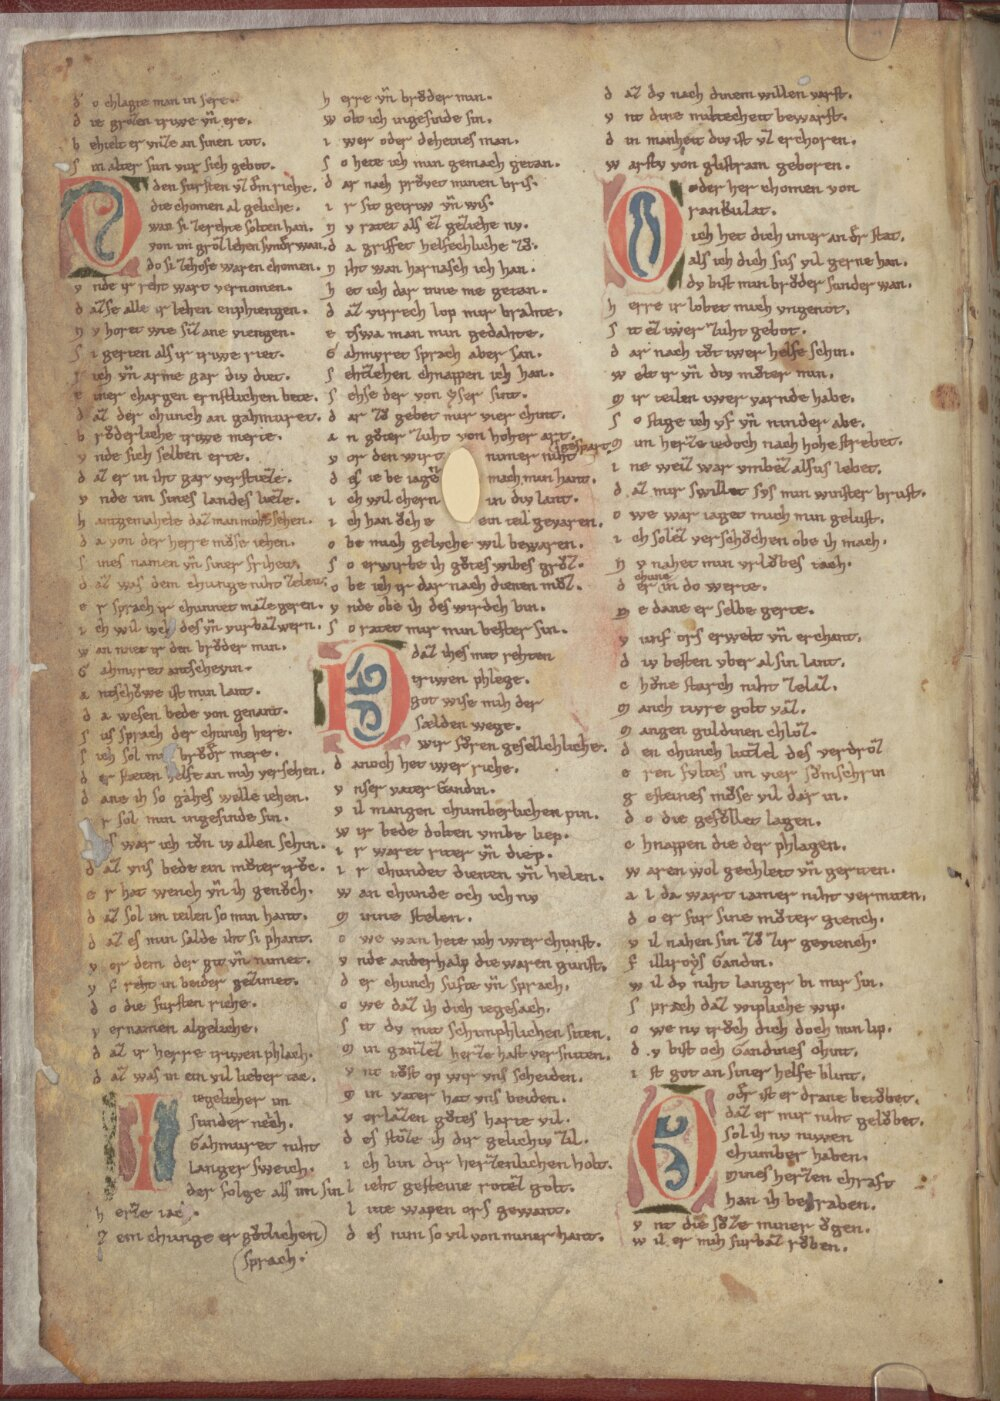 d o chlagte man in sere.
d ie grozen triwe vn ere.
b ehielt er vnze an sinen tot.
s in alter sun vur sich gebot.
den fursten vz dem riche.
die chomen al geliche.
wan si ze rehte solten han.
von im groz lehen sunder wan.
do si zehofe waren chomen.
v nde ir reht wart vernomen.
d azse alle ir lehen enphiengen.
n v horet wie siz ane viengen.
s i gerten als ir triwe riet.
r ich vn arme gar div diet.
e iner chargen ernstlichen bete.
d az der chunch an gahmuret.
b röderliche triwe merte.
v nde sich selben erte.
d az er in iht gar verstieze.
v nde im sines landes lieze.
h antgemahele daz man moht sehen.
d a von der herre möse iehen.
s ines namen vn siner friheit.
d az was dem chunige niht ze leit.
e r sprach ir chunnet maze geren.
i ch wil iuch des vn vurbaz wern.
w an niet ir den bröder min.
G ahmuret antscheyin.
a ntschöwe ist min lant.
d a wesen bede von genant.
s us sprach der chunch here.
s ich sol min bröder mere.
d er stæten helfe an mih versehen.
d ane ih so gahes welle iehen.
e r sol min ingesinde sin.
d az vns bede ein möter tröc.
e r hat wench vn ih genöch.
d az sol im teilen so min hant.
d az es min salde iht si phant.
v or dem der git vn nimet.
v f reht in beider gezimet.
d o die fursten riche.
v ernamen algeliche.
d az ir herre triwen phlach.
d az was in ein vil lieber tac.
I iegelicher im
sunder neich.
Gahmuret niht
langer sweich.
der folge als im sin
h erze iac.
z ein chunge er götlichen
sprach.
h erre vn bröder min.
w olt ich ingesinde sin.
i wer oder deheines man.
s o hete ich min gemach getan.
d ar nach pröuet minen bris.
i r sit getriw vn wis.
n v ratet als ez geziehe nv.
d a griffet helfechliche zö.
n iht wan harnasch ich han.
h et ich dar inne me getan.
d az virrech lop mir brahte.
e tswa man min gedahte.
G ahmuret sprach aber san.
s ehzehen chnappen ich han.
s ehse der von yser sint.
d ar zö gebet mir vier chint.
a n göter zuht von hoher art.
v or den wirt nimer niht gespart.
d es ie beiage mach min hant.
i ch wil chern in div lant.
i ch han öch e ein teil gevaren.
o be mich gelvche wil bewaren.
s o erwirbe ih götes wibes gröz.
o be ich ir dar nach dienen möz.
v nde obe ih des wirdch bin.
s o ratet mir min bester sin.
D daz ihes mit rehten
triwen phlege.
got wise mih der
sælden wege.
wir fören gesellchliche.
d anoch het iwer riche.
v nser vater Gandin.
v il mangen chumberlichen pin.
w ir bede dolten vmbe liep.
i r waret riter vn diep.
i r chundet dienen vn helen.
w an chunde och ich nv
m inne stelen.
o we wan hete ich iwer chunst.
v nde anderhalp die waren gunst.
d er chunch sufte vn sprach.
o we daz ih dich iegesach.
s it dv mit schimphlichen siten.
m in ganzez herze hast versniten.
v nt töst op wir vns scheiden.
m in vater hat vns beiden.
v erlazen götes harte vil.
d es stöze ih dir gelichiv zil.
i ch bin dir herzenlichen holt.
l ieht gesteine rotez golt.
l ite wapen ors gewant.
d es nim so vil von miner hant.
d az dv nach dinem willen varst.
v nt dine miltecheit bewarst.
d in manheit div ist vz erchoren.
w arstv von glistram geboren.
O oder her chomen von
rankulat.
ich het dich imer an der stat.
als ich dich sus vil gerne han.
dv bist min bröder sunder wan.
h erre ir lobet mich vngenöt.
s it ez iwer zuht gebot.
d ar nach töt iwer helfe schin.
w elt ir vn div möter min.
m ir teilen iwer varnde habe.
s o stige ich vf vn ninder abe.
m in herze iedoch nach hohe strebet.
i ne weiz war vmbez alsus lebet.
d az mir swillet sus min winster brust.
o we war iaget mich min gelust.
i ch solez verschöchen obe ih mach.
n v nahet min vrlöbes tach.
d er chunc in do werte.
m e dane er selbe gerte.
v unf ors erwelt vn erchant.
d iv besten vber al sin lant.
c höne starch niht ze laz.
m anch tivre golt vaz.
m angen guldinen chloz.
d en chunch luzel des verdröz
e ren fultes im vier sömschrin
g esteines möse vil dar in.
d o die gefüllet lagen.
c hnappen die der phlagen.
w aren wol gechleit vn geriten.
a l da wart iamer niht vermiten.
d o er fur sine möter giench.
v il nahen sin zö zir geviench.
f illiroys Gandin.
w il dv niht langer bi mir sin.
s prach daz wipliche wip.
o we nv tröch dich doch min lip.
d v bist och Gandines chint.
i st got an siner helfe blint.
O oder ist er drane betöbet.
daz er mir niht gelöbet.
sol ih nv niwen
chumber haben.
mines herzen chraft
han ih begraben.
v nt die söze miner ögen.
w il er mih furbaz röben.